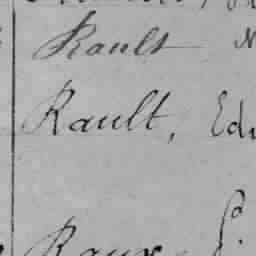 Rault N
Rault, Edu
Raux